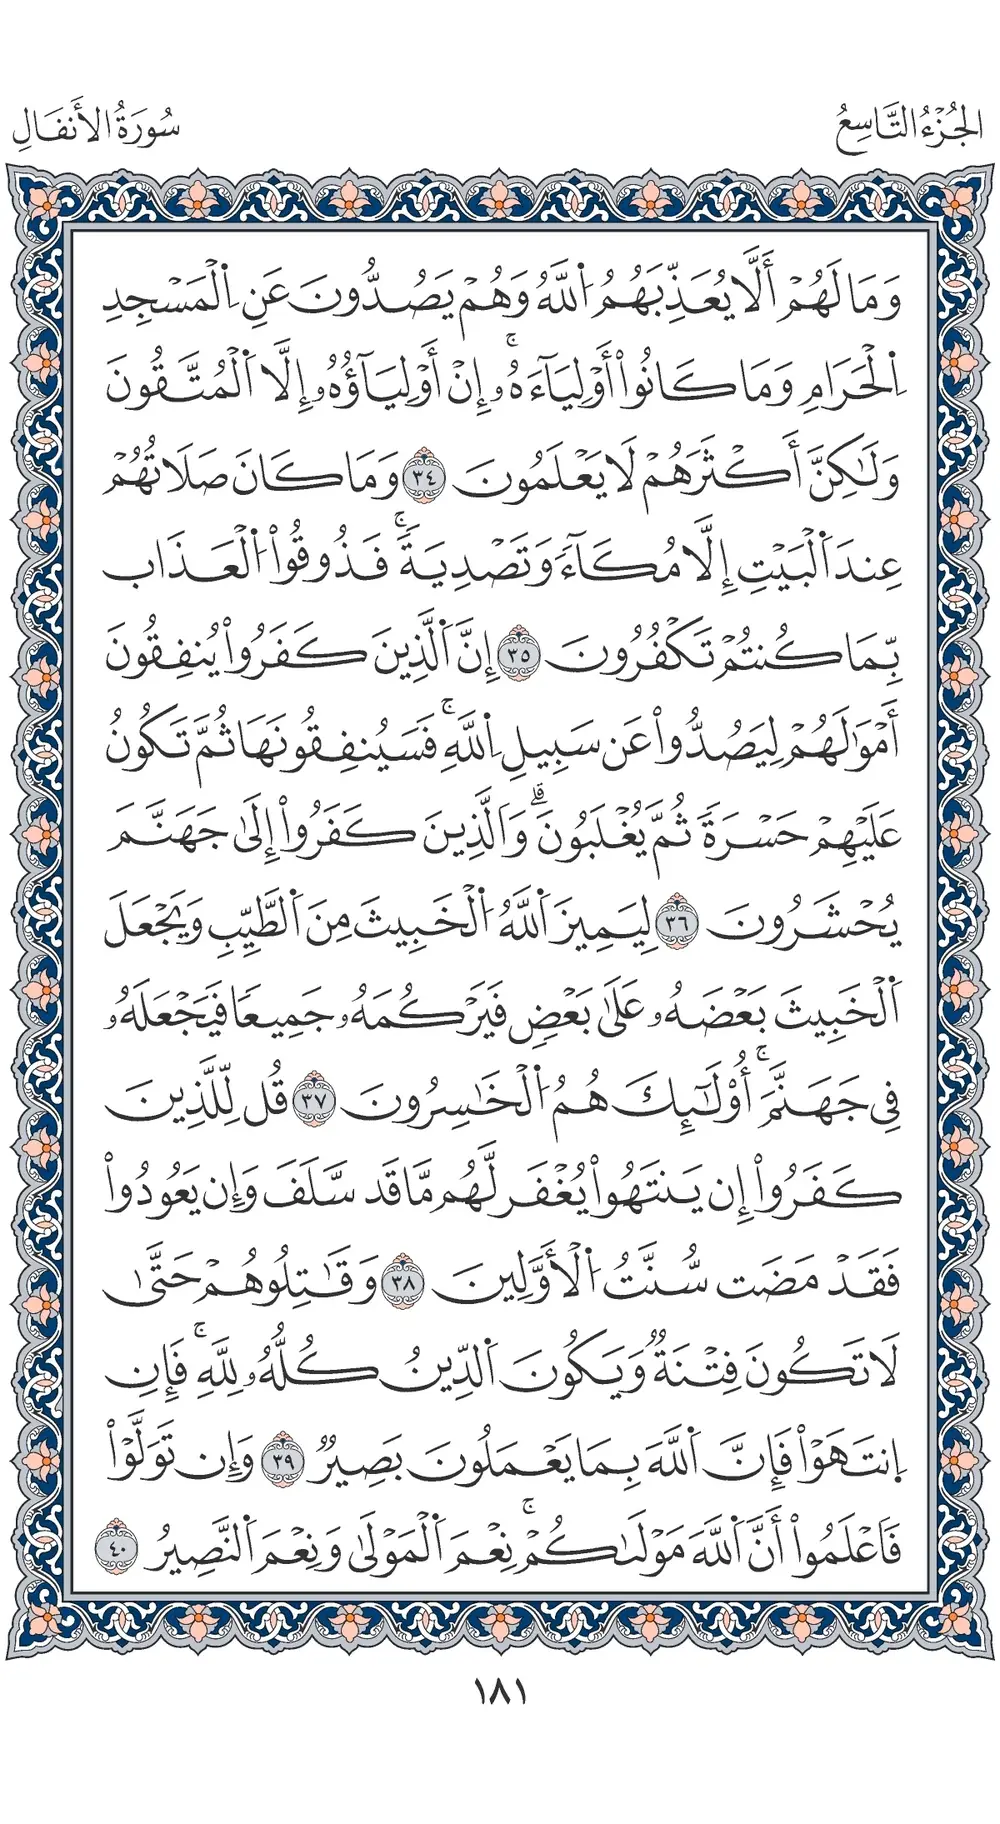 الجُزْءُ التَّاسِعُ
سُورَةُ الأَنفَالِ
وَمَا لَهُمْ أَلَّا يُعَذِّبَهُمُ اُ۬للَّهُ وَهُمْ يَصُدُّونَ عَنِ اِ۬لْمَسْجِدِ
اِ۬لْحَرَامِ وَمَا كَانُواْ أَوْلِيَآءَهُۥۚ إِنْ أَوْلِيَآؤُهُۥ إِلَّا اَ۬لْمُتَّقُونَ
وَلَٰكِنَّ أَكْثَرَهُمْ لَا يَعْلَمُونَ ٣٤ وَمَا كَانَ صَلَاتُهُمْ
عِندَ اَ۬لْبَيْتِ إِلَّا مُكَآءً وَتَصْدِيَةًۚ فَذُوقُواْ اُ۬لْعَذَابَ
بِمَا كُنتُمْ تَكْفُرُونَ ٣٥ إِنَّ اَ۬لَّذِينَ كَفَرُواْ يُنفِقُونَ
أَمْوَٰلَهُمْ لِيَصُدُّواْ عَن سَبِيلِ اِ۬للَّهِۚ فَسَيُنفِقُونَهَا ثُمَّ تَكُونُ
عَلَيْهِمْ حَسْرَةً ثُمَّ يُغْلَبُونَۗ وَالَّذِينَ كَفَرُواْ إِلَىٰ جَهَنَّمَ
يُحْشَرُونَ ٣٦ لِيَمِيزَ اَ۬للَّهُ اُ۬لْخَبِيثَ مِنَ اَ۬لطَّيِّبِ وَيَجْعَلَ
اَ۬لْخَبِيثَ بَعْضَهُۥ عَلَىٰ بَعْضٍ فَيَرْكُمَهُۥ جَمِيعًا فَيَجْعَلَهُۥ
فِي جَهَنَّمَۚ أُوْلَٰٓئِكَ هُمُ اُ۬لْخَٰسِرُونَ ٣٧ قُل لِّلَّذِينَ
كَفَرُواْ إِن يَنتَهُواْ يُغْفَر لَّهُم مَّا قَد سَّلَفَ وَإِن يَعُودُواْ
فَقَدْ مَضَت سُّنَّتُ اُ۬لْأَوَّلِينَ ٣٨ وَقَٰتِلُوهُمْ حَتَّىٰ
لَا تَكُونَ فِتْنَةٌ وَيَكُونَ اَ۬لدِّينُ كُلُّهُۥ لِلَّهِۚ فَإِنِ
اِ۪نتَهَوْاْ فَإِنَّ اَ۬للَّهَ بِمَا يَعْمَلُونَ بَصِيرٌ ٣٩ وَإِن تَوَلَّوْاْ
فَاعْلَمُواْ أَنَّ اَ۬للَّهَ مَوْلَىٰكُمْۚ نِعْمَ اَ۬لْمَوْلَىٰ وَنِعْمَ اَ۬لنَّصِيرُ ٤٠
١٨١